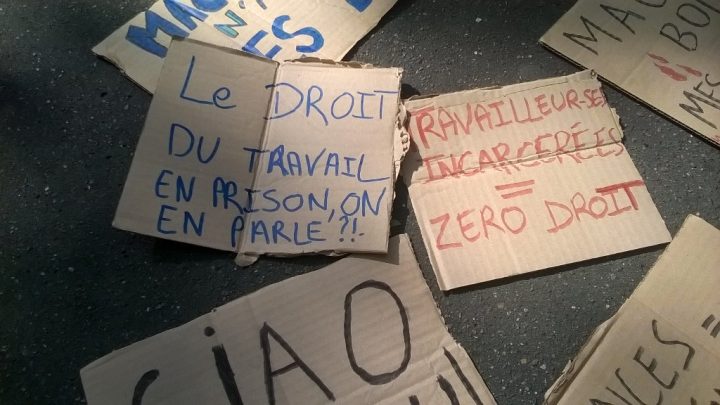 MA
ES
LE DROIT
DU TRAVAIL
EN PRISON, ON
EN PARLE ?!
TRAVAILLEUR-SES
INCARCÉRÉES
=
ZERO DROIT
MA
BO
MES
CIAO
NCES =